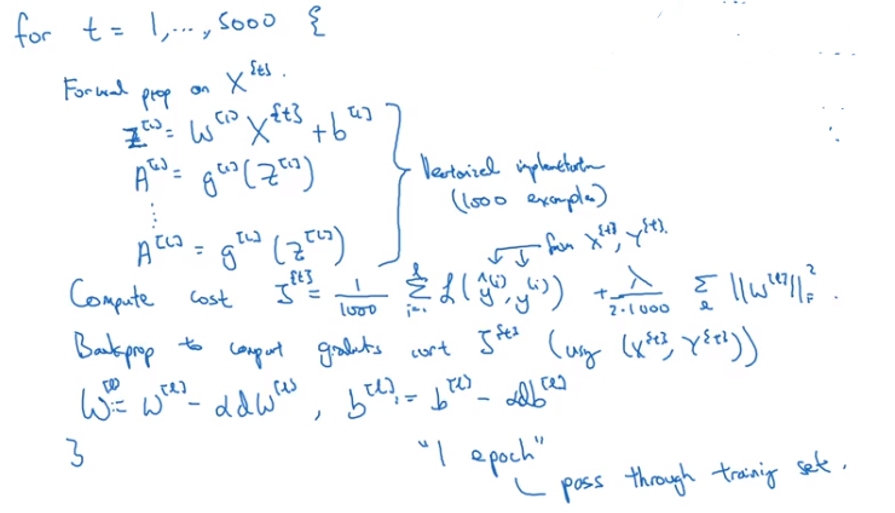 for t = 1,...,5000 {
Forward prop on X^{t}.
Z^[1] = W^[1] X^{t} + b^[1]
A^[1] = g^[1](Z^[1])
⋮
A^[L] = g^[L](Z^[L])
Vectorized implementation
(1000 examples)
from X^{t}, Y^{t}.
Compute cost J^{t} = 1/1000 Σ_{i=1}^{l} L(ŷ^(i), y^(i)) + λ/(2·1000) Σ_l ||W^[l]||_F^2.
Backprop to comput gradients wrt J^{t} (using (X^{t}, Y^{t}))
W^[l] := W^[l] - αdW^[l], b^[l] := b^[l] - αdb^[l]
}
"1 epoch"
pass through training set.